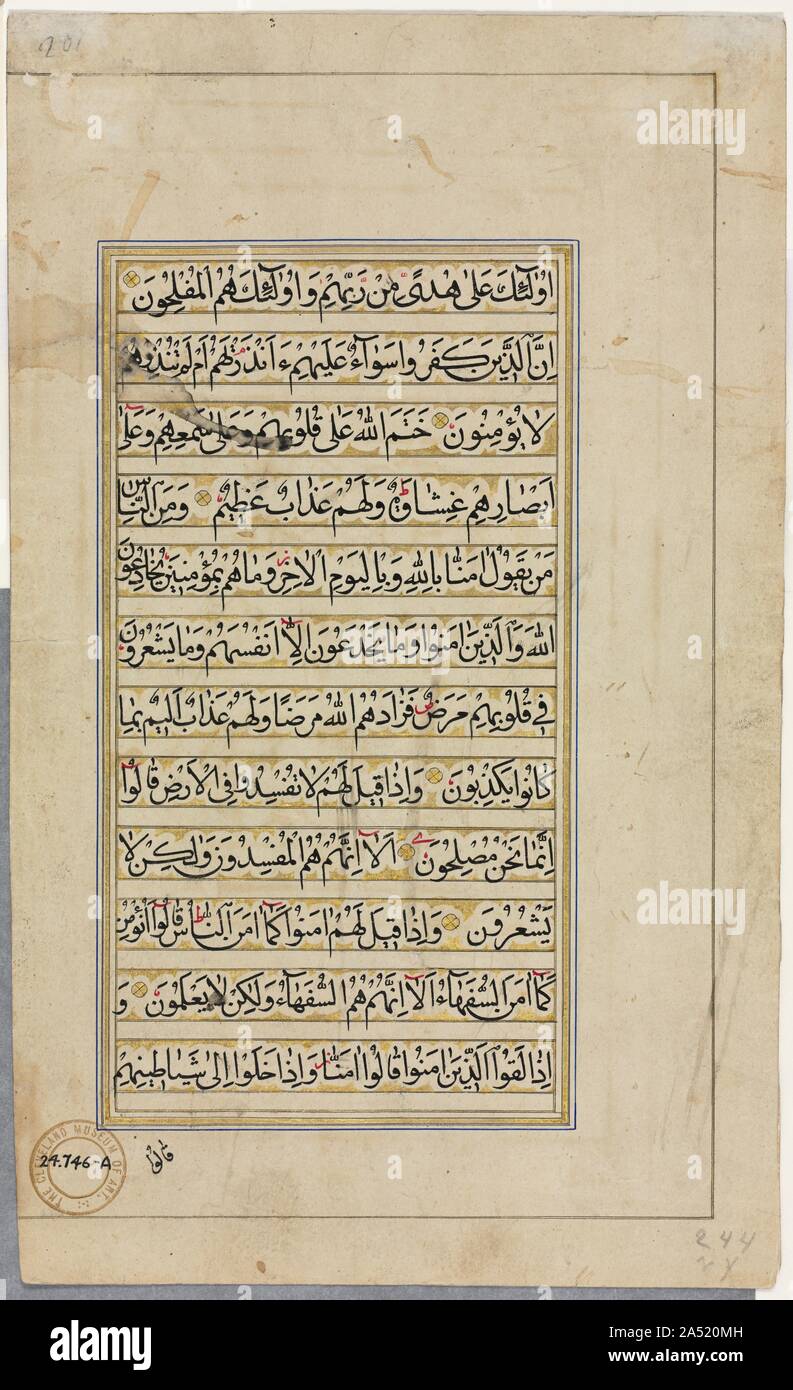 201
اُولٰٓئِكَ عَلٰى هُدًى مِنْ رَبِّهِمْ وَاُولٰٓئِكَ هُمُ الْمُفْلِحُونَ
اِنَّ الَّذِينَ كَفَرُوا سَوَآءٌ عَلَيْهِمْ ءَاَنْذَرْتَهُمْ اَمْ لَمْ تُنْذِرْهُمْ
لَا يُؤْمِنُونَ خَتَمَ اللّٰهُ عَلٰى قُلُوبِهِمْ وَعَلٰى سَمْعِهِمْ وَعَلٰٓى
اَبْصَارِهِمْ غِشَاوَةٌ وَلَهُمْ عَذَابٌ عَظِيمٌ وَمِنَ النَّاسِ
مَنْ يَقُولُ اٰمَنَّا بِاللّٰهِ وَبِالْيَوْمِ الْاٰخِرِ وَمَا هُمْ بِمُؤْمِنِينَ يُخَادِعُونَ
اللّٰهَ وَالَّذِينَ اٰمَنُوا وَمَا يَخْدَعُونَ اِلَّٓا اَنْفُسَهُمْ وَمَا يَشْعُرُونَ
فِي قُلُوبِهِمْ مَرَضٌ فَزَادَهُمُ اللّٰهُ مَرَضًا وَلَهُمْ عَذَابٌ اَلِيمٌ بِمَا
كَانُوا يَكْذِبُونَ وَاِذَا قِيلَ لَهُمْ لَا تُفْسِدُوا فِي الْاَرْضِ قَالُوٓا
اِنَّمَا نَحْنُ مُصْلِحُونَ اَلَٓا اِنَّهُمْ هُمُ الْمُفْسِدُونَ وَلٰكِنْ لَا
يَشْعُرُونَ وَاِذَا قِيلَ لَهُمْ اٰمِنُوا كَمَٓا اٰمَنَ النَّاسُ قَالُوٓا اَنُؤْمِنُ
كَمَٓا اٰمَنَ السُّفَهَآءُ اَلَٓا اِنَّهُمْ هُمُ السُّفَهَآءُ وَلٰكِنْ لَا يَعْلَمُونَ وَ
اِذَا لَقُوا الَّذِينَ اٰمَنُوا قَالُوٓا اٰمَنَّا وَاِذَا خَلَوْا اِلٰى شَيَاطِينِهِمْ
قالوا
THE CLEVELAND MUSEUM OF ART
24.746-A
244
alamy
Image ID: 2A520MH
www.alamy.com